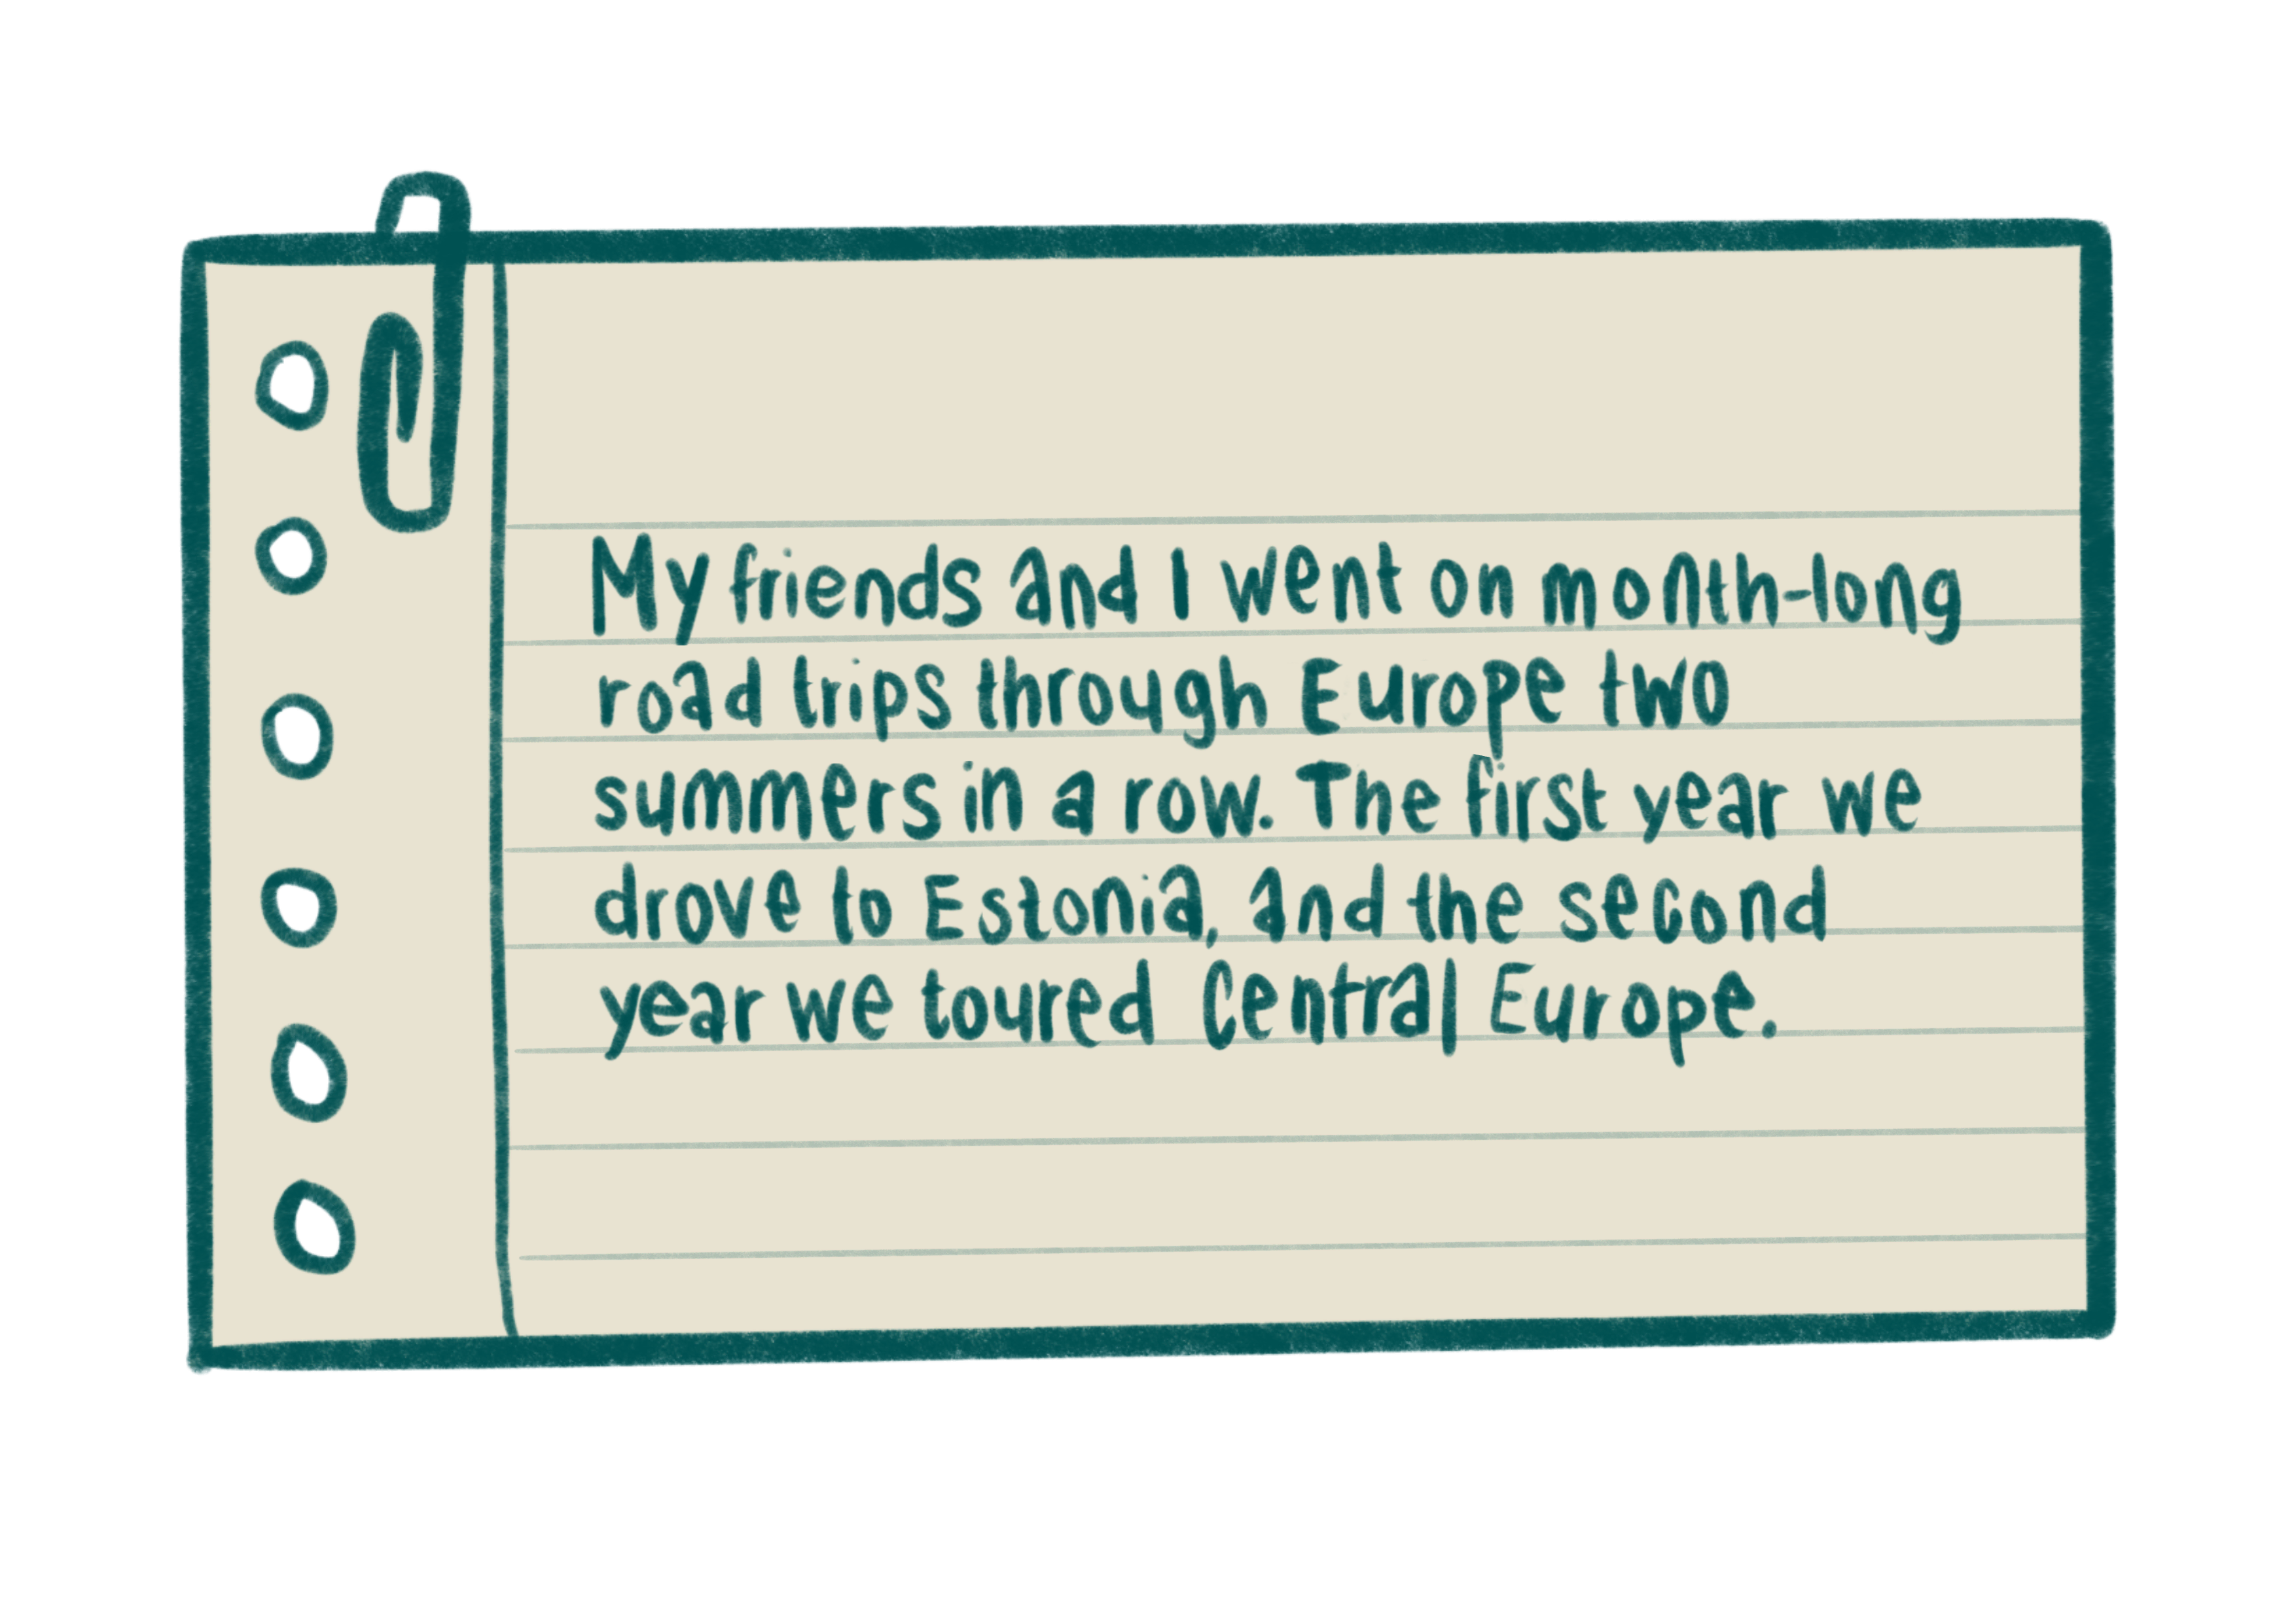 My friends and I went on month-long
road trips through Europe two
summers in a row. The first year we
drove to Estonia, and the second
year we toured Central Europe.